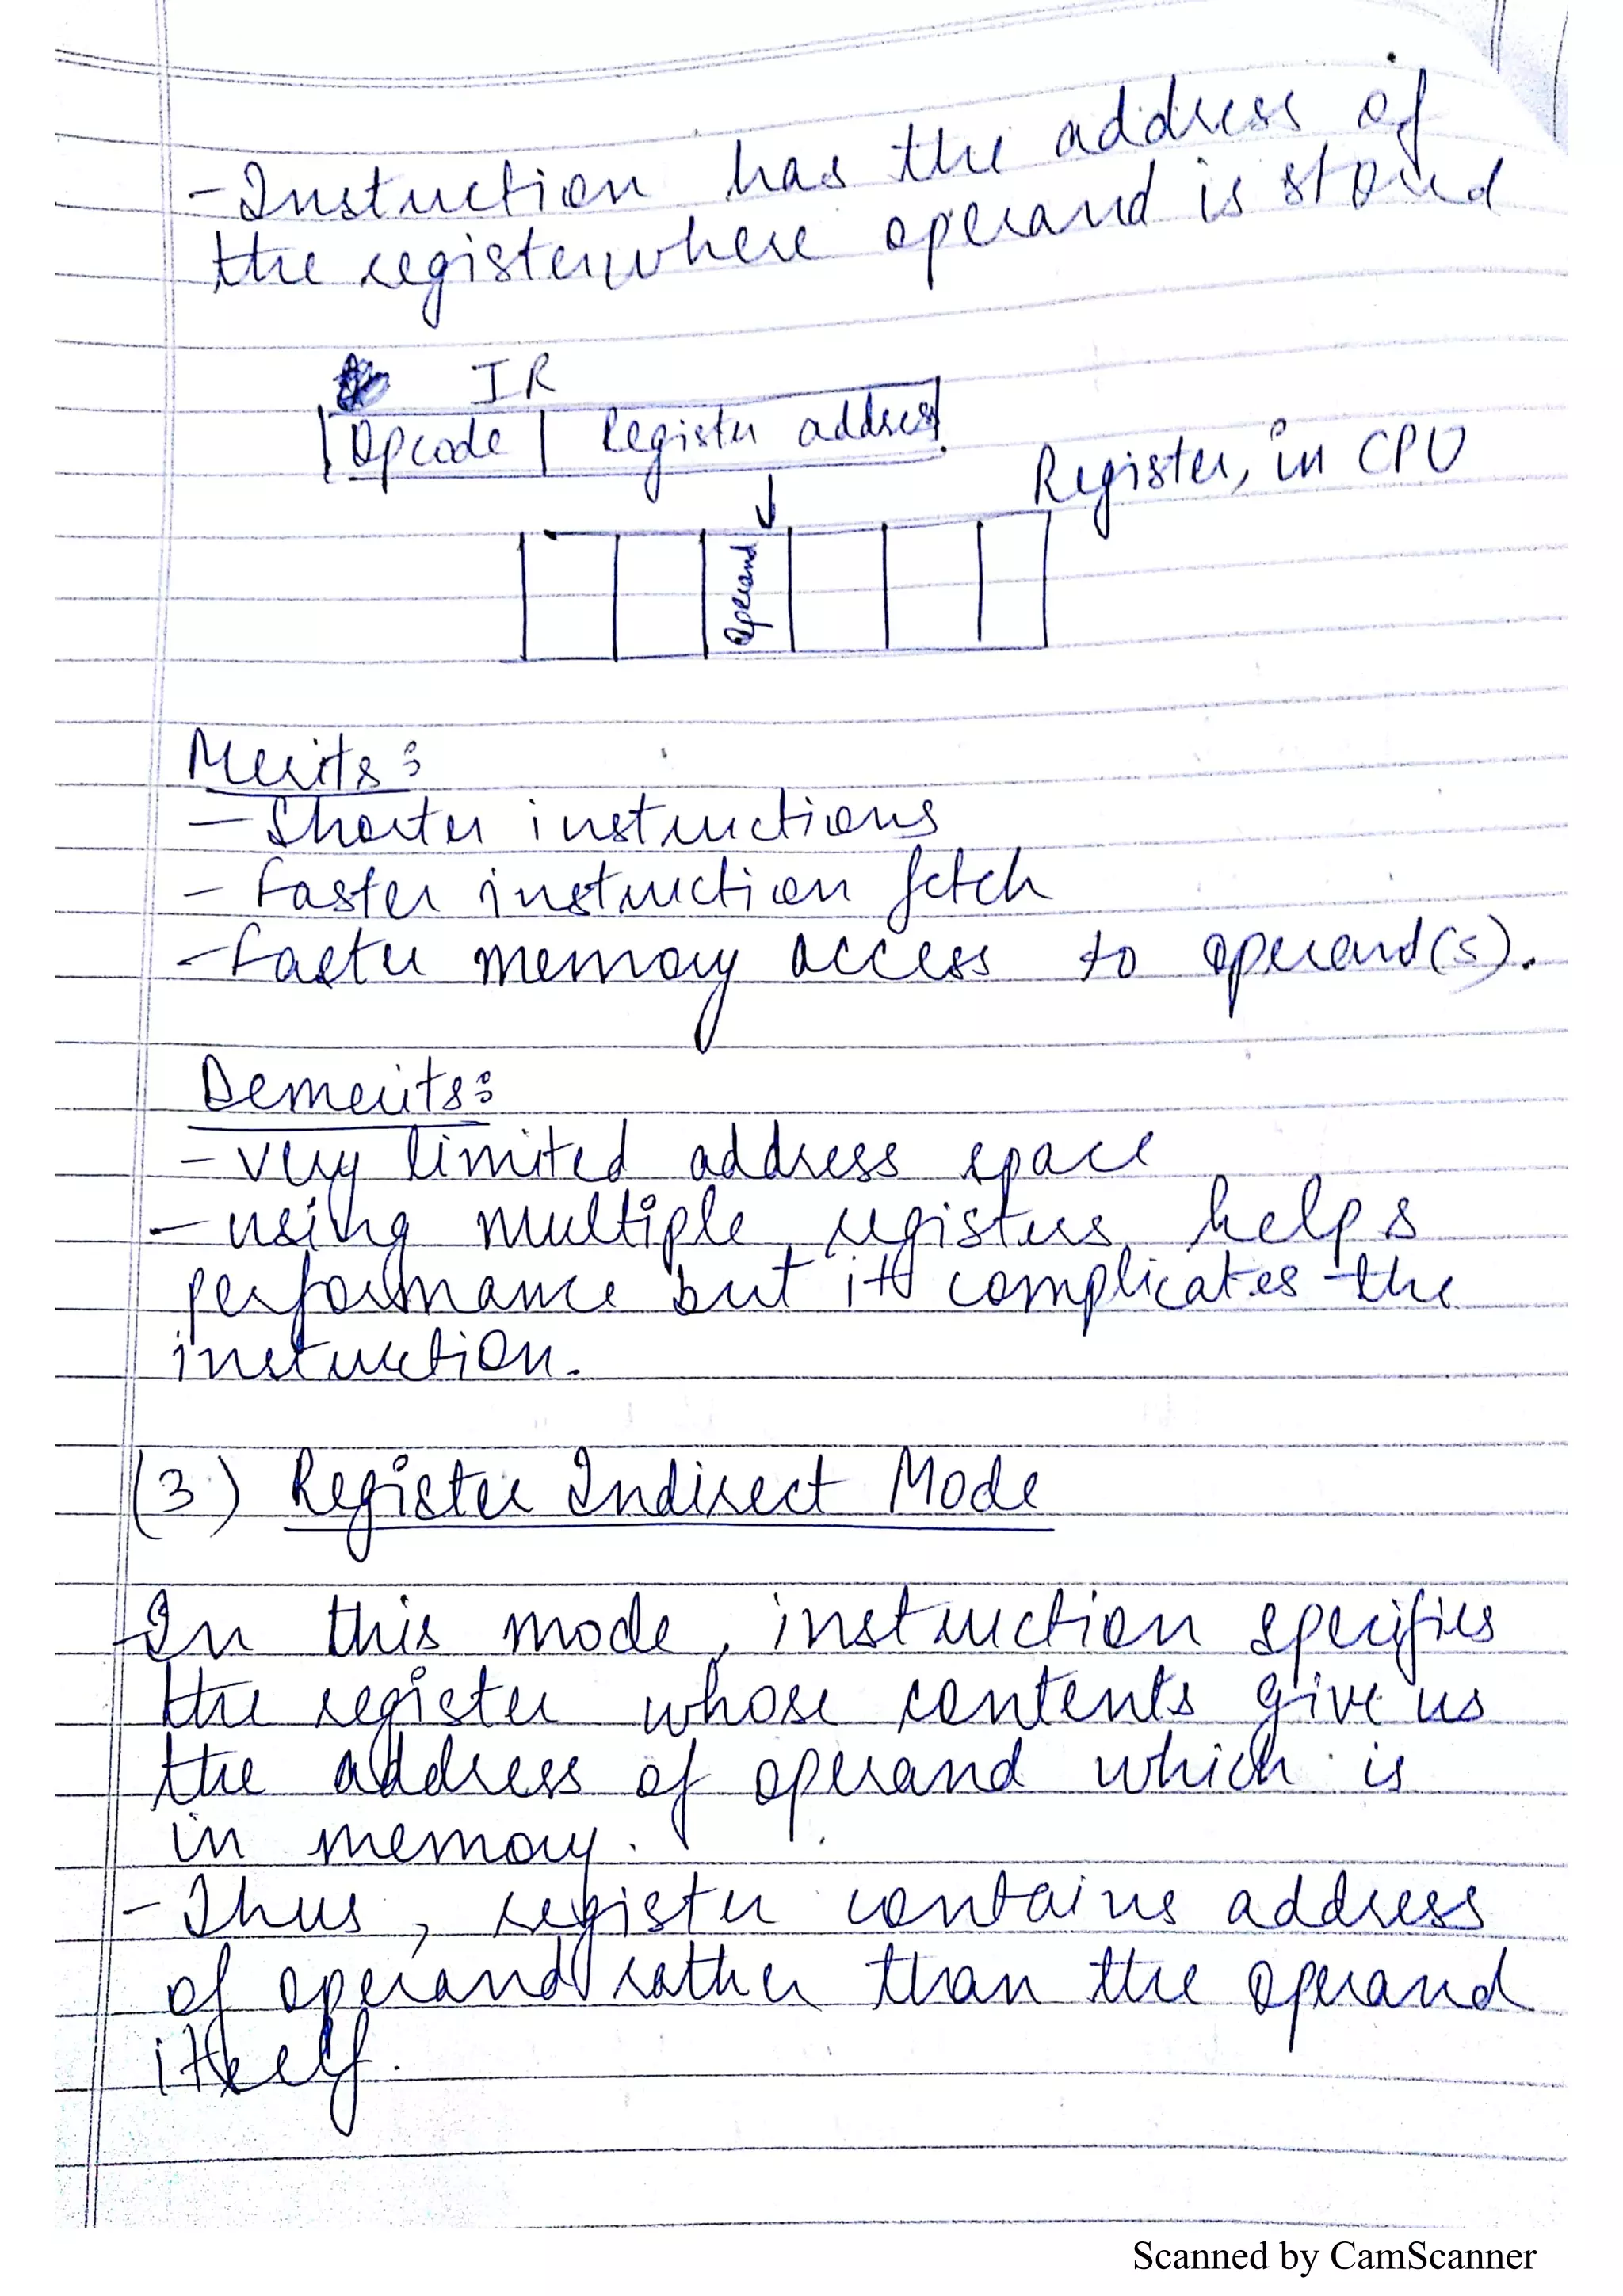 - Instuction has the address of
the register where operand is stored
IR
Opcode | Register address
Register, in CPU
Operand
Merits:
- Shorter instructions
- Faster instruction fetch
- Faster memory access to operand(s).
Demerits:
- Very limited address space
- using multiple registers helps
performance but it complicates the
instruction.
(3) Register Indirect Mode
- In this mode, instruction specifies
the register whose contents give us
the address of operand which is
in memory.
- Thus, register contains address
of operand rather than the operand
itself.
Scanned by CamScanner